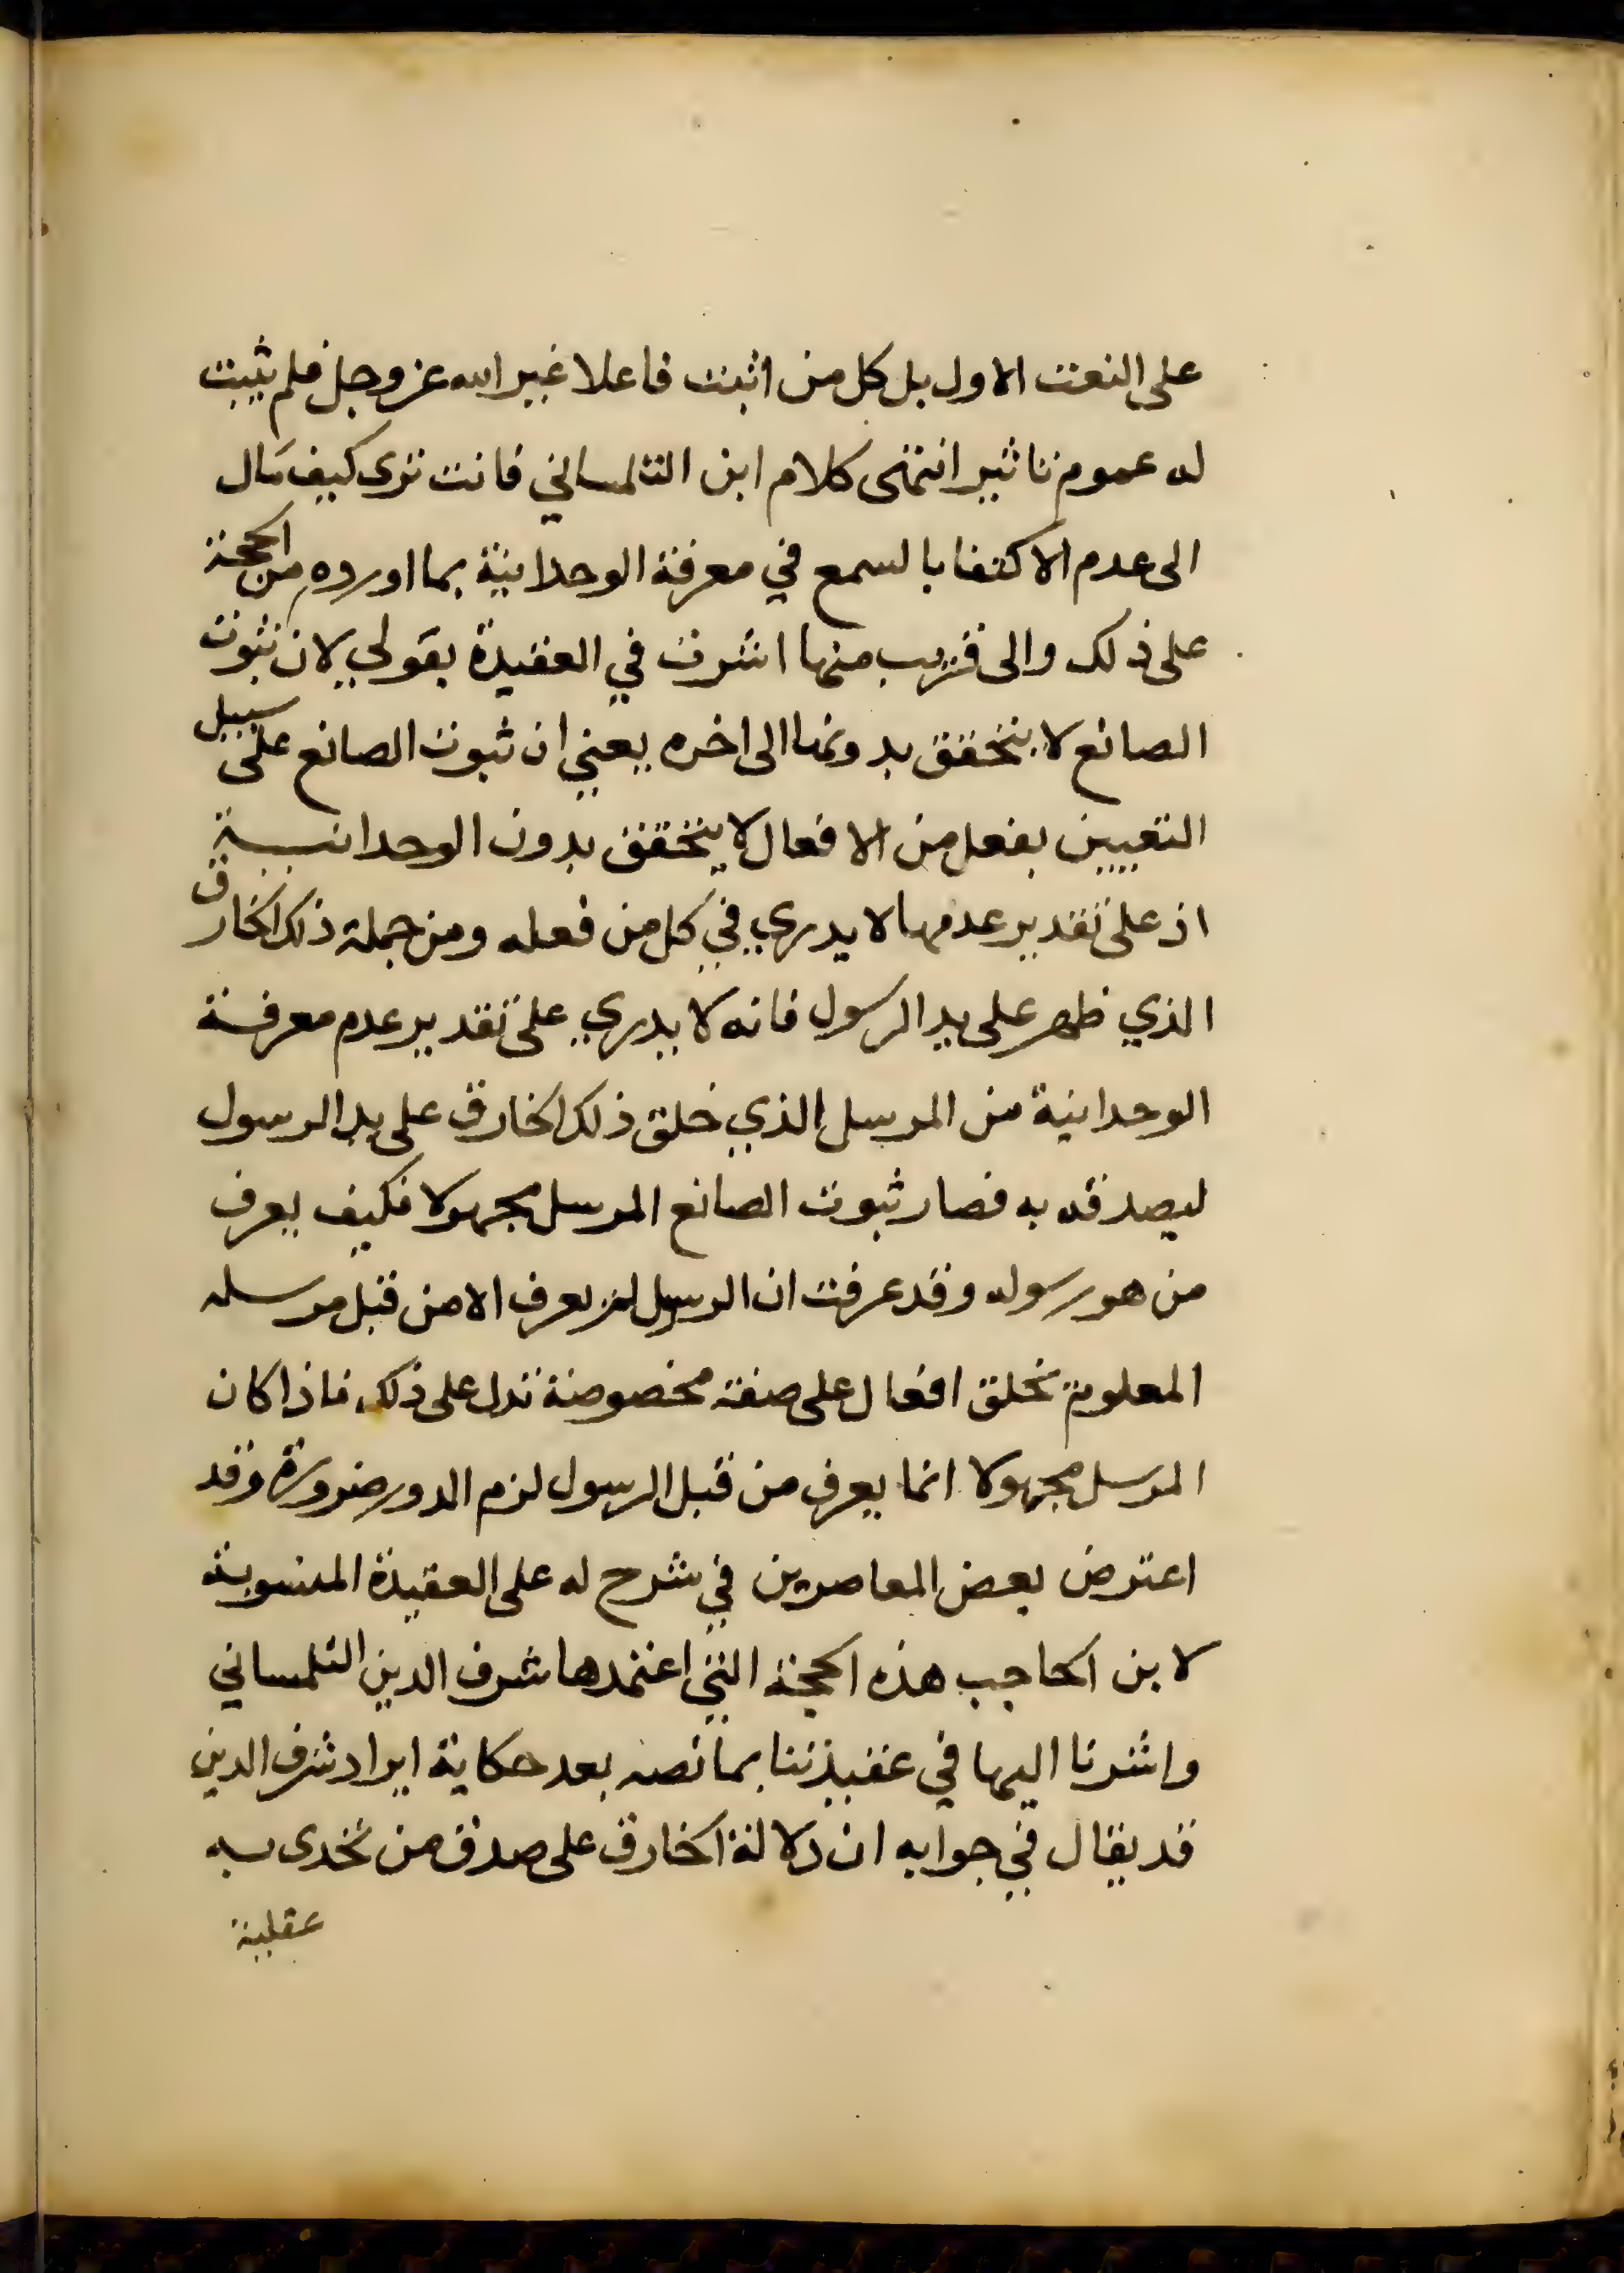 على النعت الاول بل كل من اثبت فاعلا غير الله عز وجل فلم يثبت
له عموم تاثير انتهى كلام ابن التلمساني فانت ترى كيف مال
الى عدم الاكتفا بالسمع في معرفة الوحدانية بما اورده من الحجة
على ذلك والى قريب منها اشرت في العقيدة بقولي لان ثبوت
الصانع لا يتحقق بدونها الى اخره يعني ان ثبوت الصانع على سبيل
التعيين بفعل من الافعال لا يتحقق بدون الوحدانية
اذ على تقدير عدمها لا يدري في كل من فعله ومن جملة ذلك الخارق
الذي ظهر على يد الرسول فانه لا يدري على تقدير عدم معرفة
الوحدانية من المرسل الذي خلق ذلك الخارق على يد الرسول
ليصدقه به فصار ثبوت الصانع المرسل مجهولا فكيف يعرف
من هو رسوله وقد عرفت ان الرسول لم يعرف الا من قبل مرسله
المعلوم بخلق افعال على صفة مخصوصة تدل على ذلك فاذا كان
المرسل مجهولا انما يعرف من قبل الرسول لزم الدور ضرورة وقد
اعترض بعض المعاصرين في شرح له على العقيدة المنسوبة
لابن الحاجب هذه الحجة التي اعتمدها شرف الدين التلمساني
واشرنا اليها في عقيدتنا بما نصه بعد حكاية ايراد شرف الدين
قد يقال في جوابه ان دلالة الخارق على صدق من تحدى به
عقلية